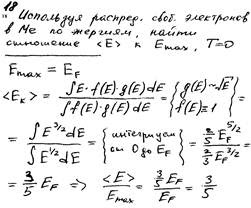 18
" Используя распред. своб. электронов
в Ме по энергиям, найти
отношение <E> к Emax, T=0
Emax = E_F
<E_K> = ∫E·f(E)·g(E)dE / ∫f(E)·g(E)dE = { g(E)~√E f(E)≡1 } =
= ∫E^{3/2}dE / ∫E^{1/2}dE = { интегрируем от 0 до E_F } = 2/5 E_F^{5/2} / 2/3 E_F^{3/2} =
= 3/5 E_F => <E>/Emax = 3/5 E_F / E_F = 3/5